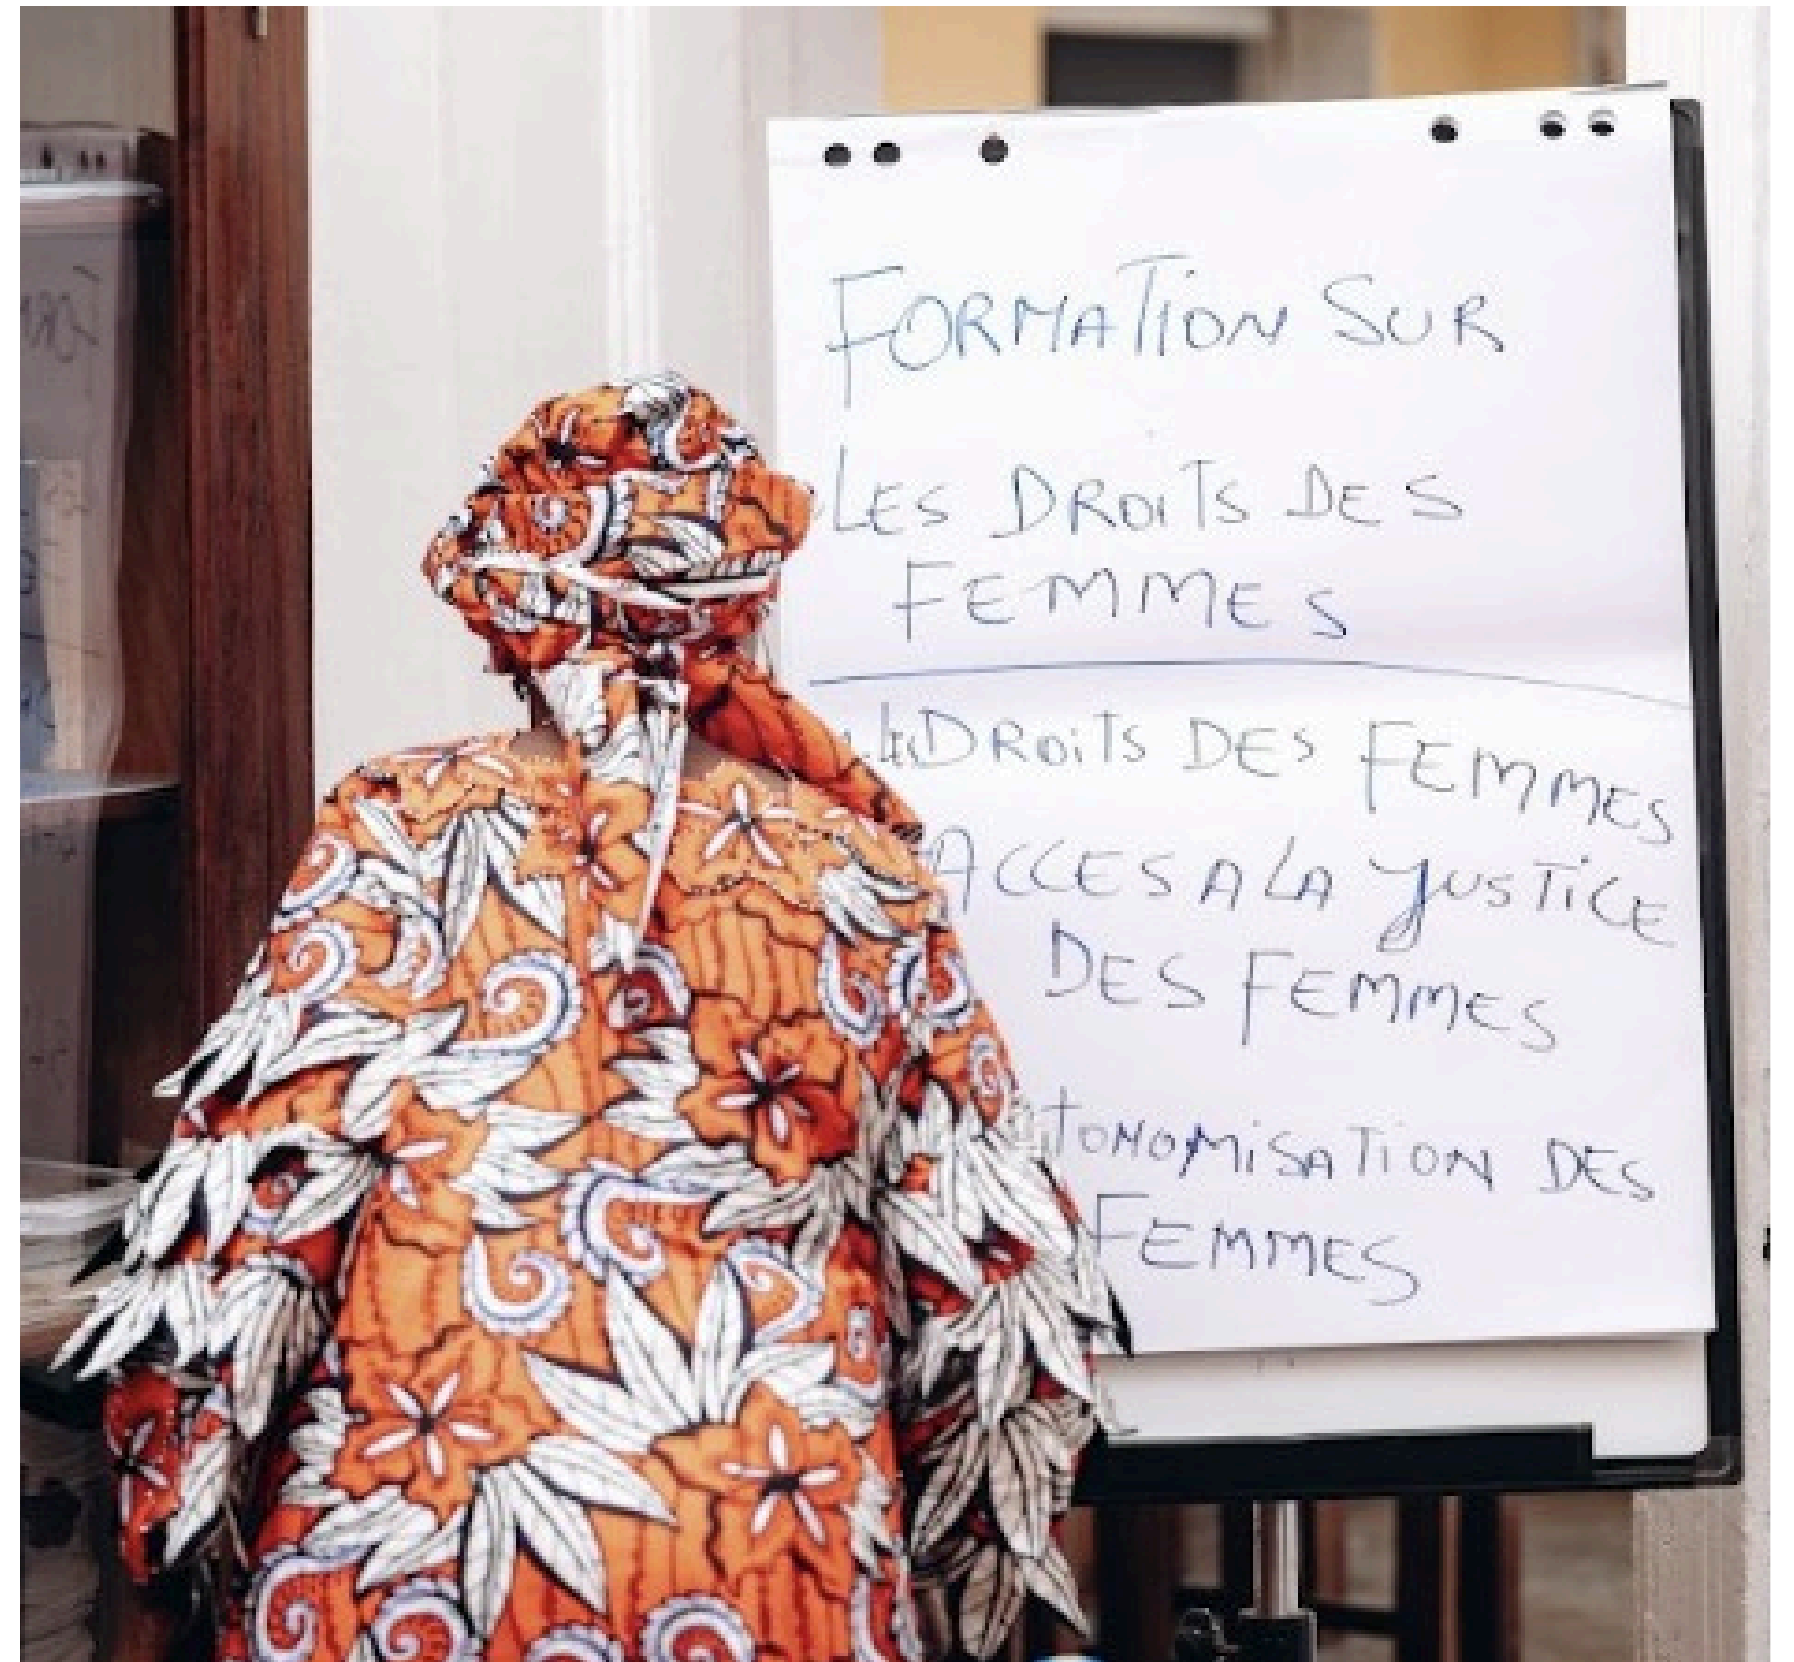 FORMATION SUR
LES DROITS DES
FEMMES
les DROITS DES FEMMES
ACCES A LA JUSTICE
DES FEMMES
TONOMISATION DES
FEMMES